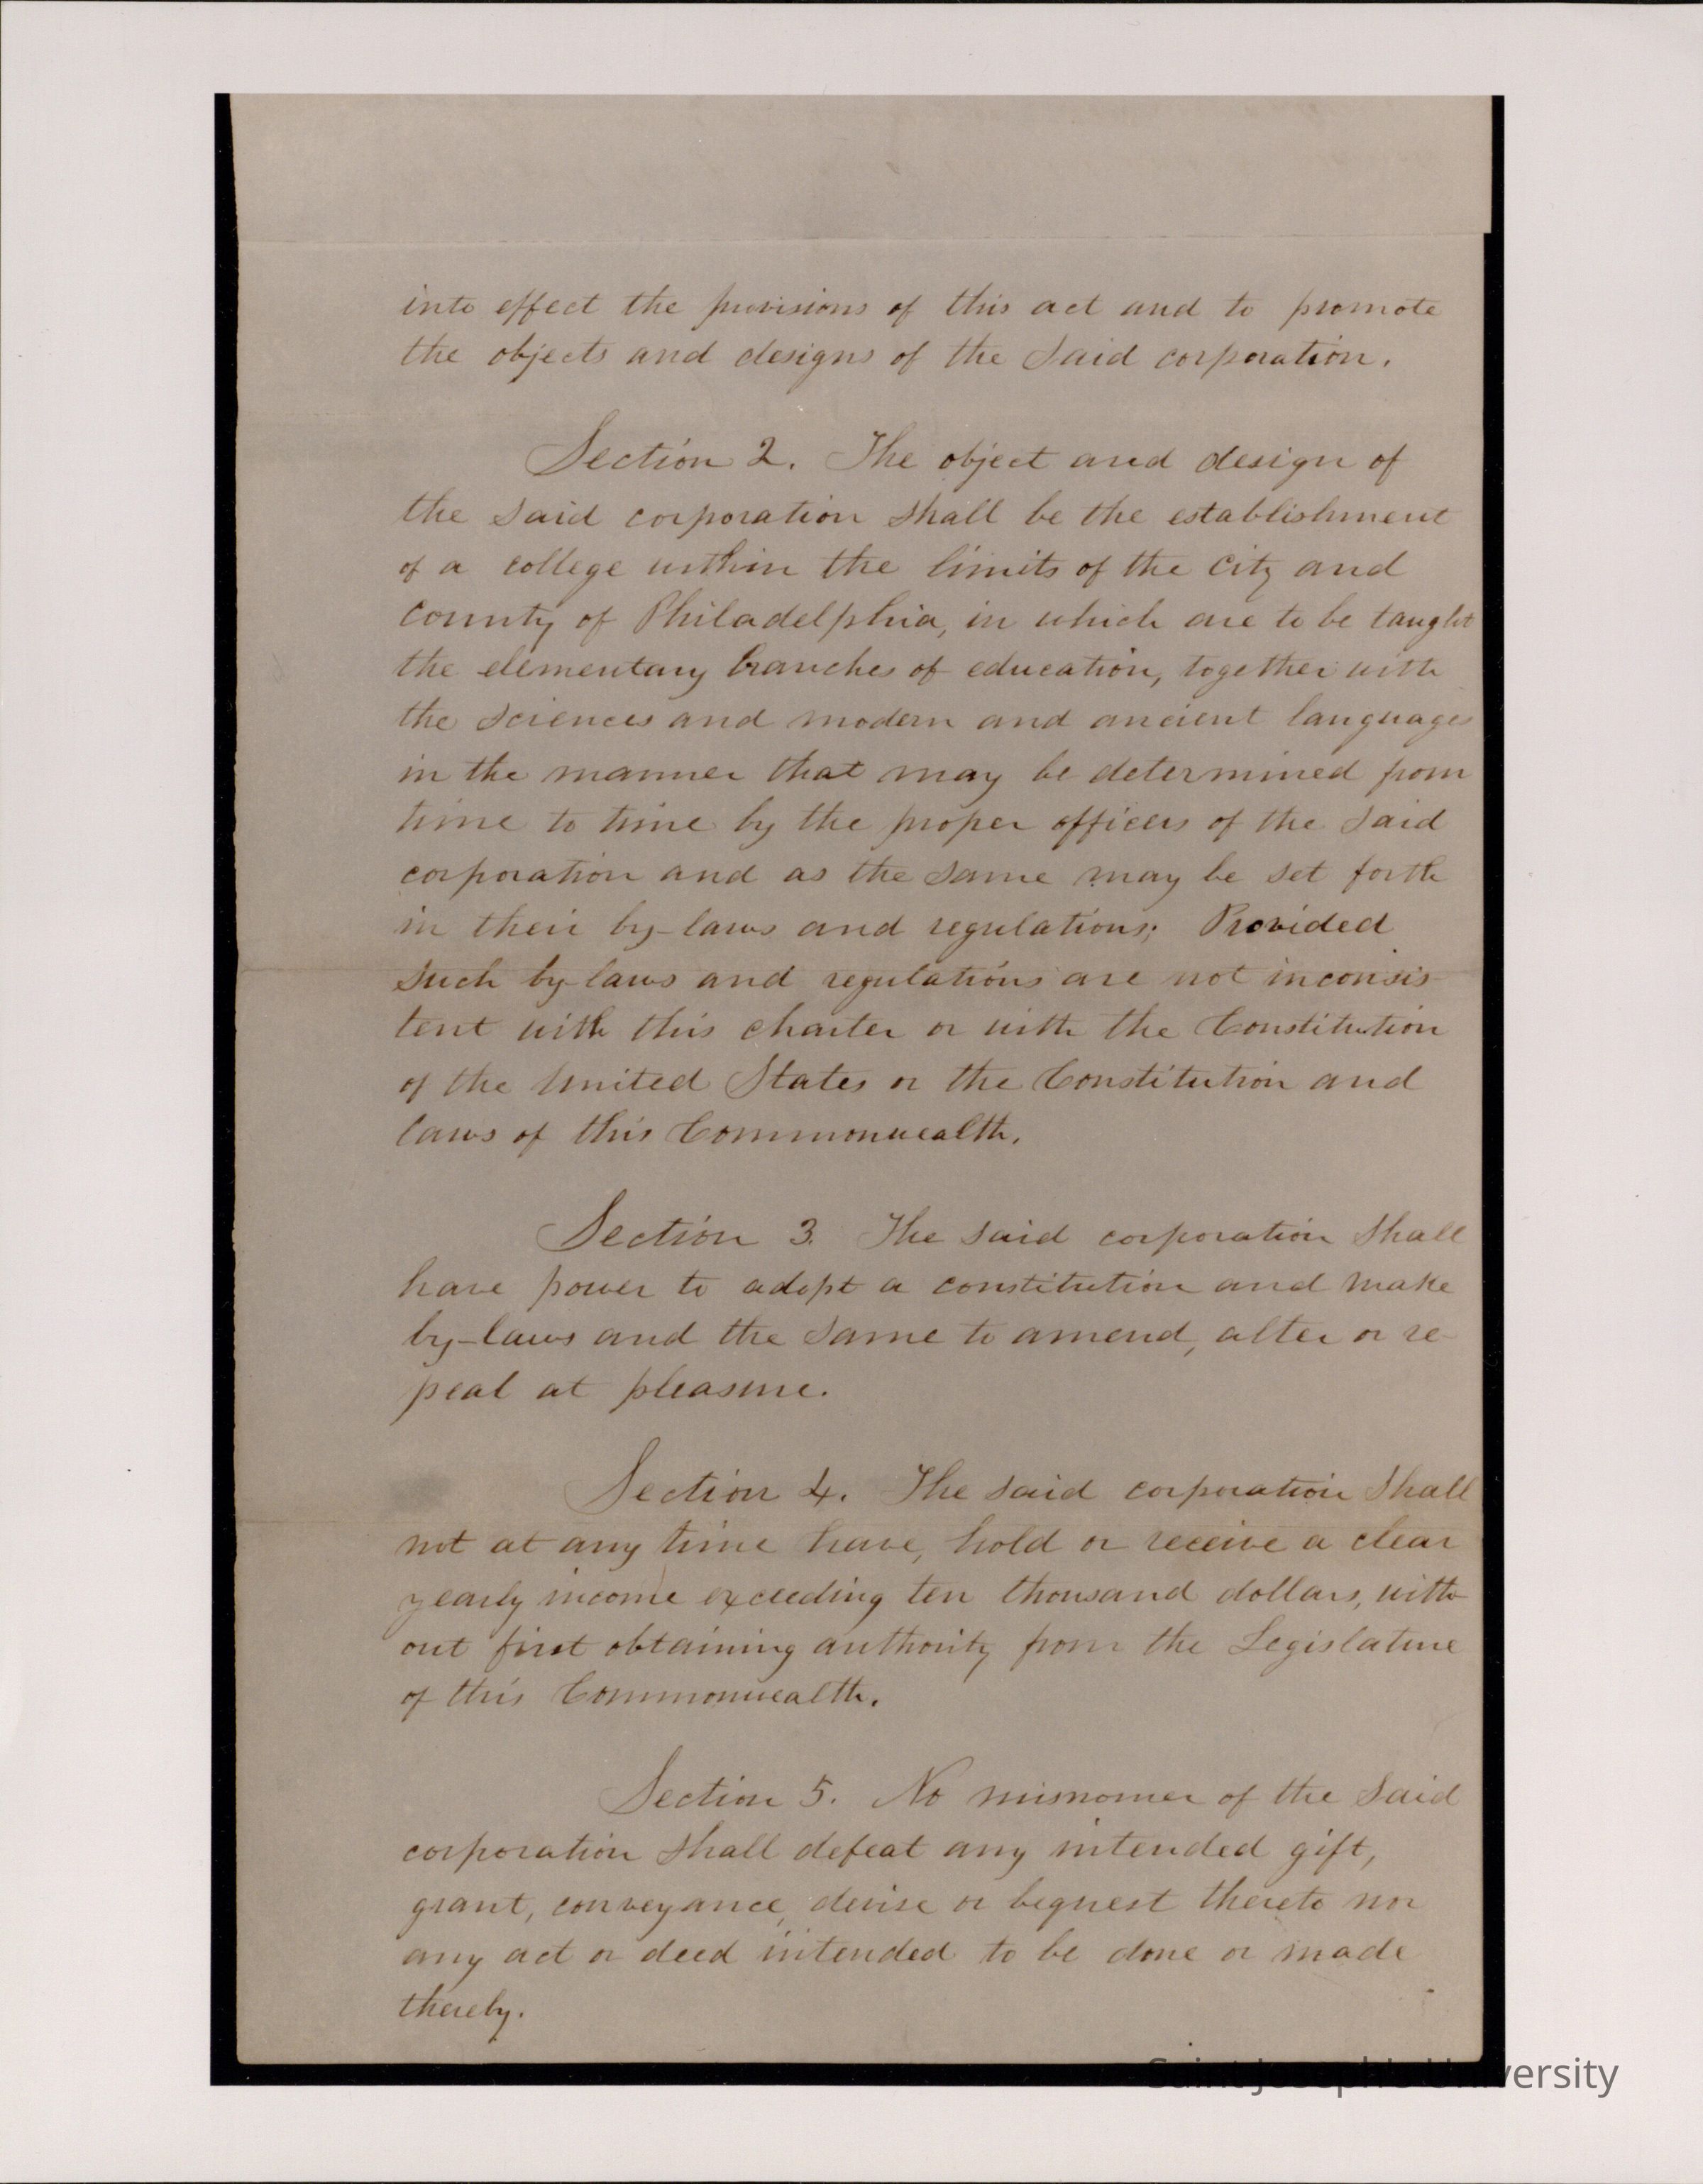 into effect the provisions of this act and to promote
the objects and designs of the said corporation.
Section 2. The object and design of
the said corporation shall be the establishment
of a college within the limits of the city and
county of Philadelphia, in which are to be taught
the elementary branches of education, together with
the sciences and modern and ancient languages
in the manner that may be determined from
time to time by the proper officers of the said
corporation and as the same may be set forth
in their by-laws and regulations; Provided
such by-laws and regulations are not inconsis-
tent with this charter or with the Constitution
of the United States or the Constitution and
laws of this Commonwealth.
Section 3. The said corporation shall
have power to adopt a constitution and make
by-laws and the same to amend, alter or re-
peal at pleasure.
Section 4. The said corporation shall
not at any time have, hold or receive a clear
yearly income exceeding ten thousand dollars, with-
out first obtaining authority from the Legislature
of this Commonwealth.
Section 5. No misnomer of the said
corporation shall defeat any intended gift,
grant, conveyance, devise or bequest thereto nor
any act or deed intended to be done or made
thereby.
Saint Joseph's University